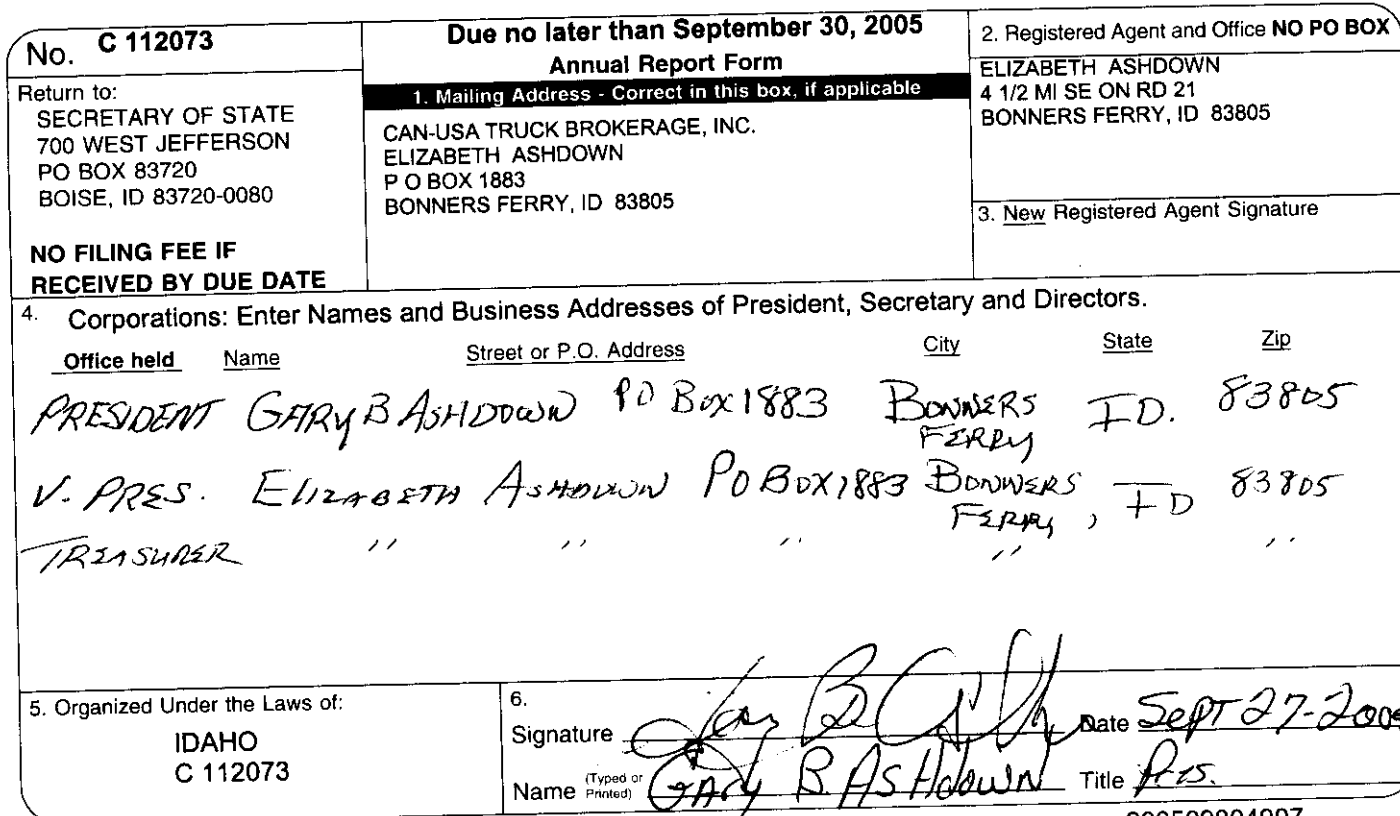 No. C 112073
Return to:
SECRETARY OF STATE
700 WEST JEFFERSON
PO BOX 83720
BOISE, ID 83720-0080
NO FILING FEE IF
RECEIVED BY DUE DATE
Due no later than September 30, 2005
Annual Report Form
1. Mailing Address - Correct in this box, if applicable
CAN-USA TRUCK BROKERAGE, INC.
ELIZABETH ASHDOWN
P O BOX 1883
BONNERS FERRY, ID 83805
2. Registered Agent and Office NO PO BOX
ELIZABETH ASHDOWN
4 1/2 MI SE ON RD 21
BONNERS FERRY, ID 83805
3. New Registered Agent Signature
4. Corporations: Enter Names and Business Addresses of President, Secretary and Directors.
Office held Name Street or P.O. Address City State Zip
PRESIDENT GARY B ASHDOWN PO BOX 1883 BONNERS FERRY ID. 83805
V. PRES. ELIZABETH ASHDOWN PO BOX 1883 BONNERS FERRY, ID 83805
TREASURER " " " " "
5. Organized Under the Laws of:
IDAHO
C 112073
6.
Signature Date Sept 27-200
Name (Typed or Printed) GARY B. ASHdOWN Title Pres.